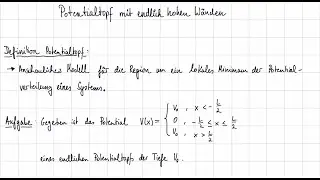 Potentialtopf mit endlich hohen Wänden
Definition Potentialtopf:
• Anschauliches Modell für die Region um ein lokales Minimum der Potential-
verteilung eines Systems.
Aufgabe: Gegeben ist das Potential V(x) = { V₀, x < -L/2
0, -L/2 ≤ x ≤ L/2
V₀, x > L/2
eines endlichen Potentialtopfs der Tiefe V₀.